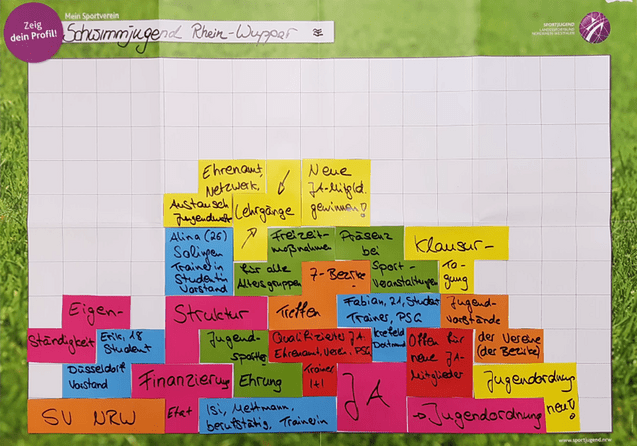 Zeig
dein Profil!
Mein Sportverein
Schwimmjugend Rhein-Wupper
SPORTJUGEND
Ehrenamt,
Netzwerk,
Neue
JA-Mitgld.
gewinnen!
Austausch
Jugendwart
Lehrgänge
Alina (26)
Solingen
Trainerin
Studentin
Vorstand
Freizeit-
maßnahmen
Präsenz
bei
Sport-
veranstaltungen
Klausur-
Ta-
gung
für alle
Altersgruppen
7-Bezirke
Treffen
Eigen-
Ständigkeit
Struktur
Fabian, 21, Student
Trainer, PSG
Jugend-
vorstände
der Vereine
(der Bezirke)
Erik, 18
Student
Düsseldorf
Vorstand
Jugend-
sportle
Ehrung
Qualifiziertes JA
Ehrenamt, Verein, PSG
Krefeld
Dortmund
Offen für
neue JA-
Mitglieder
Finanzierung
Trainer
JA
Jugendordnung
neu!
SV NRW
Etat
Isi, Mettmann,
berufstätig, Trainerin
→ Jugendordnung
www.sportjugend.nrw